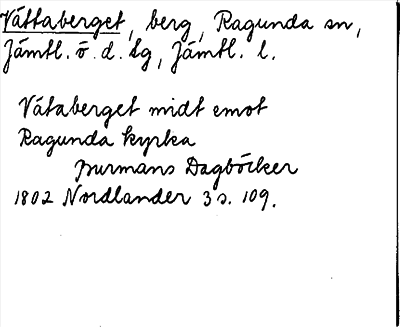 Våttaberget, berg, Ragunda sn,
Jämtl. ö. d. tg, Jämtl. l.
Våtaberget midt emot
Ragunda kyrka
Burmans Dagböcker
1802 Nordlander 3 s. 109.